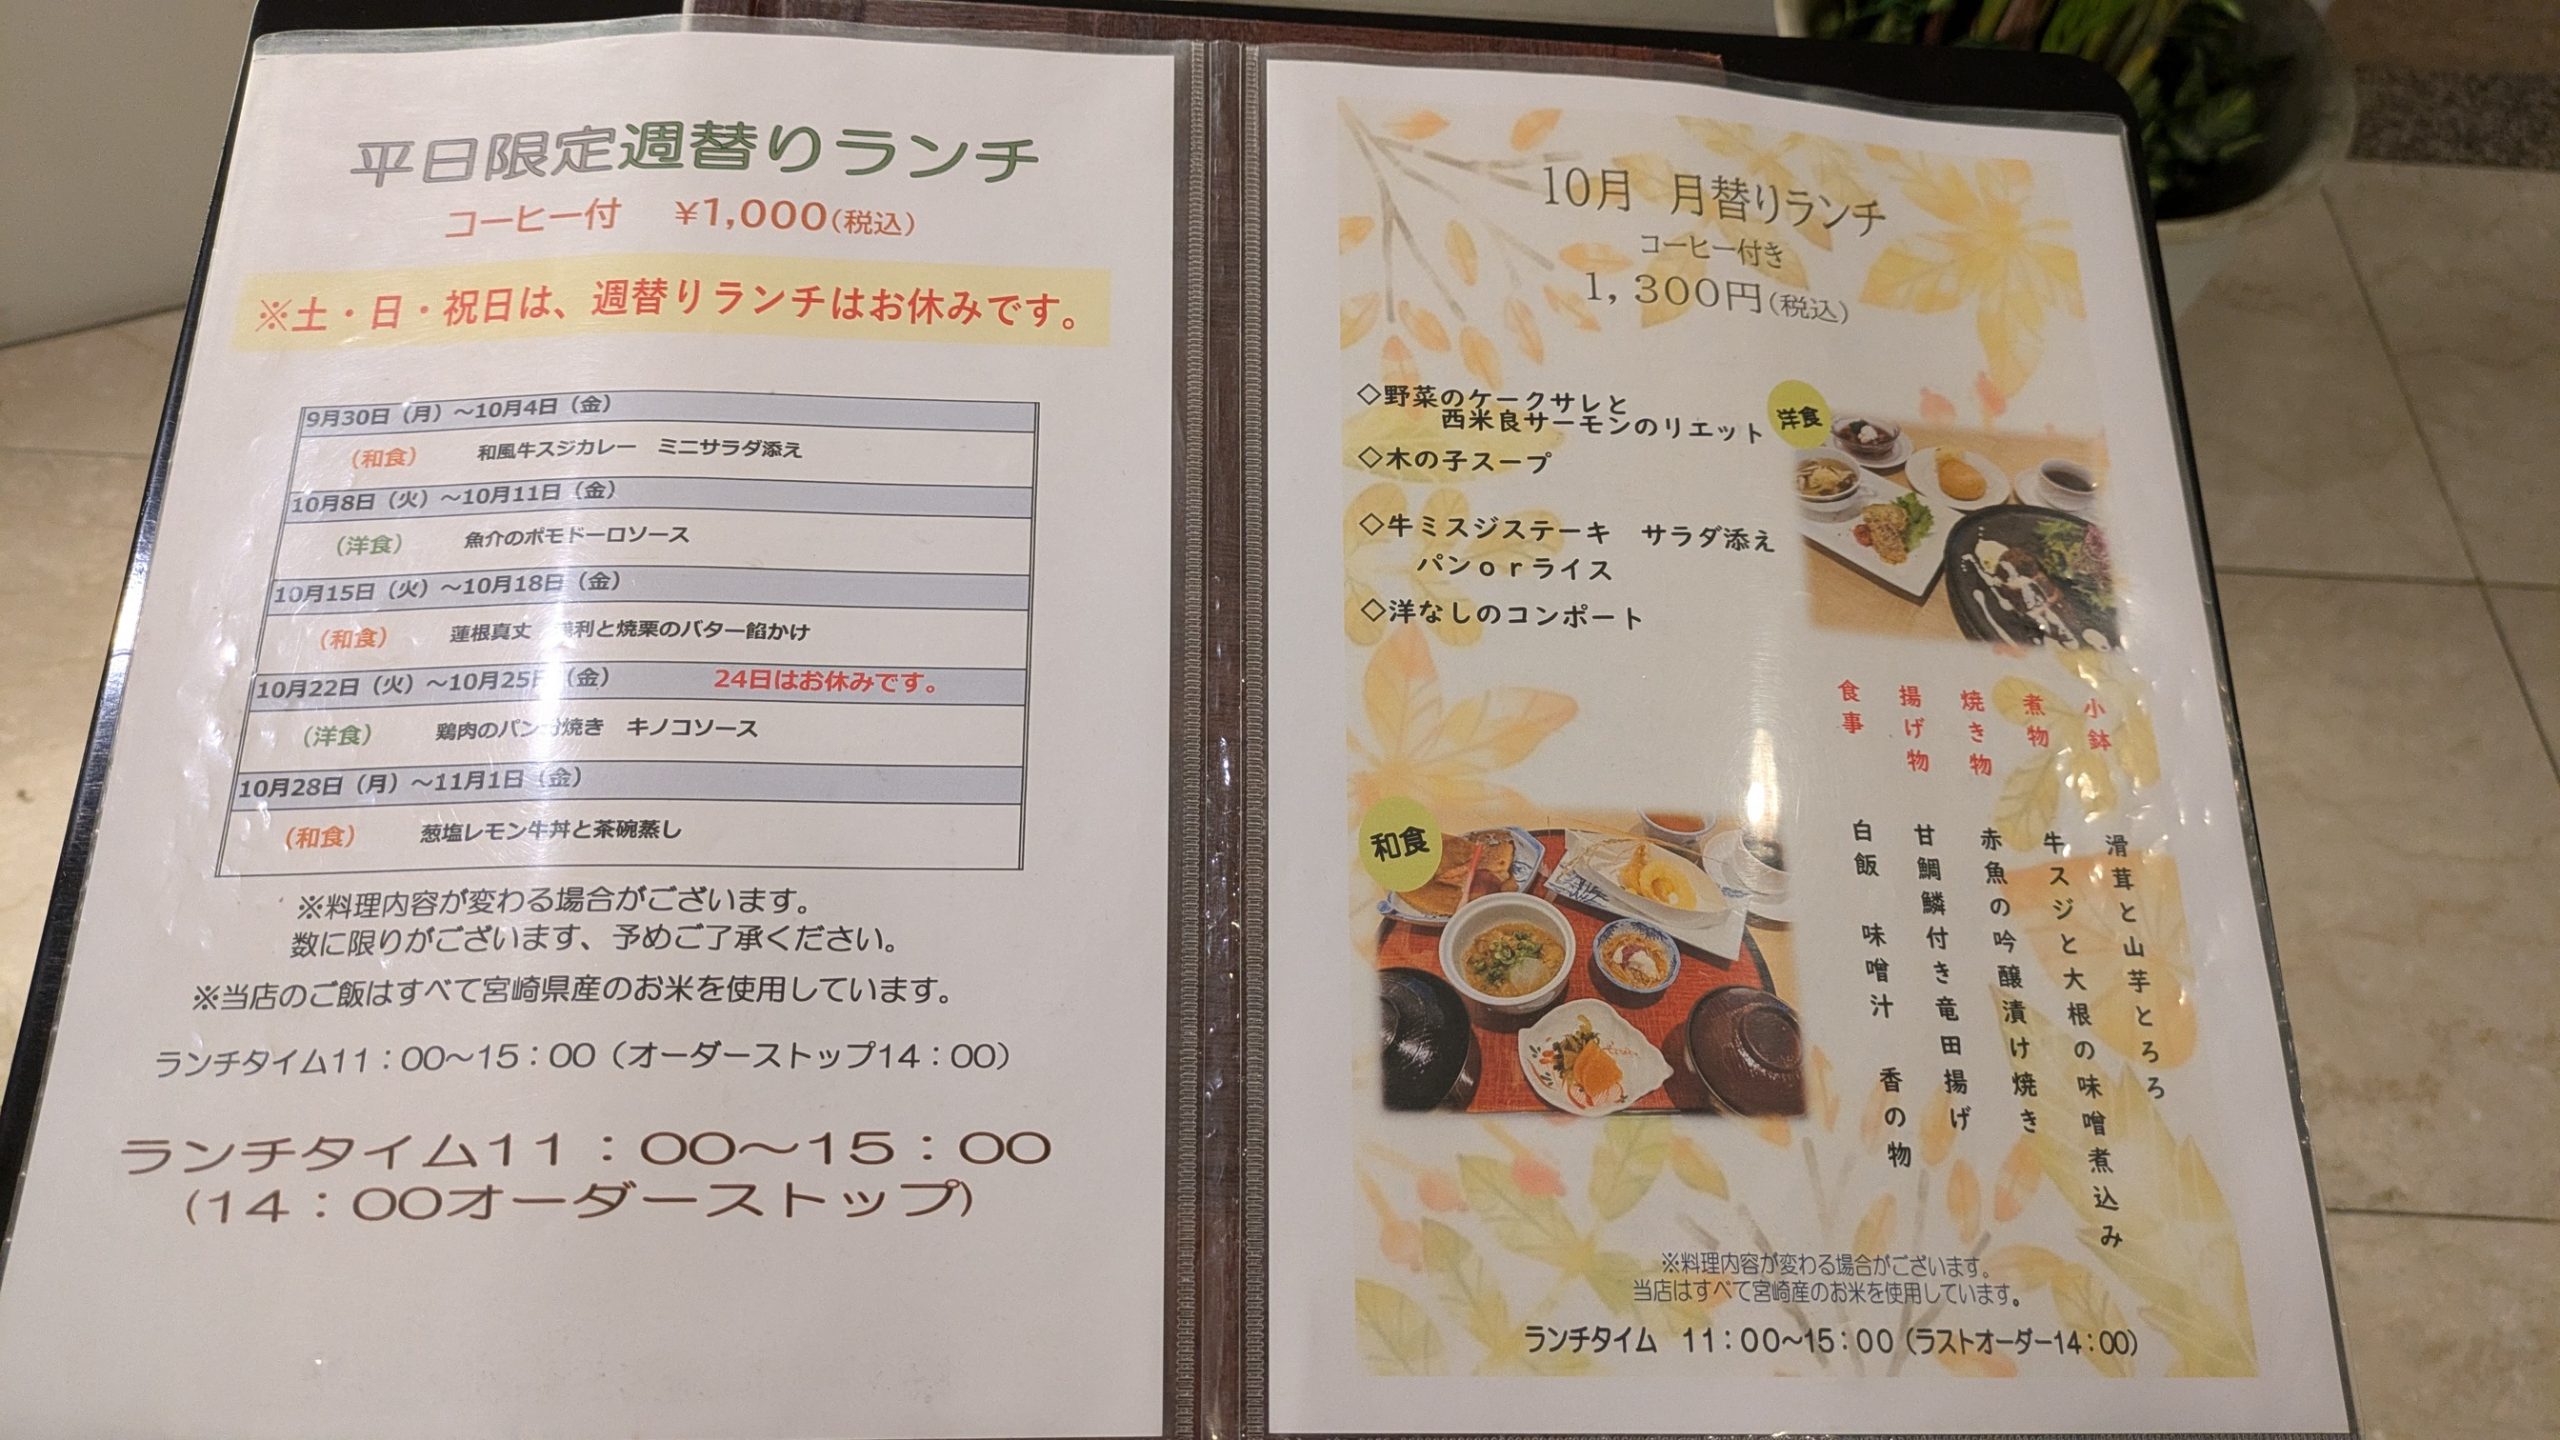 平日限定週替りランチ
コーヒー付　¥1,000(税込)
※土・日・祝日は、週替りランチはお休みです。
9月30日（月）～10月4日（金）
（和食）　和風牛スジカレー　ミニサラダ添え
10月8日（火）～10月11日（金）
（洋食）　魚介のポモドーロソース
10月15日（火）～10月18日（金）
（和食）　蓮根真丈　利と焼栗のバター餡かけ
10月22日（火）～10月25日（金）　24日はお休みです。
（洋食）　鶏肉のパン粉焼き　キノコソース
10月28日（月）～11月1日（金）
（和食）　葱塩レモン牛丼と茶碗蒸し
※料理内容が変わる場合がございます。
数に限りがございます、予めご了承ください。
※当店のご飯はすべて宮崎県産のお米を使用しています。
ランチタイム11：00～15：00（オーダーストップ14：00）
ランチタイム11：00～15：00
(14：00オーダーストップ)
10月　月替りランチ
コーヒー付き
1,300円(税込)
◇野菜のケークサレと
西米良サーモンのリエット
◇木の子スープ
◇牛ミスジステーキ　サラダ添え
パンorライス
◇洋なしのコンポート
洋食
和食
小鉢　滑茸と山芋とろろ
煮物　牛スジと大根の味噌煮込み
焼き物　赤魚の吟醸漬け焼き
揚げ物　甘鯛鱗付き竜田揚げ
食事　白飯　味噌汁　香の物
※料理内容が変わる場合がございます。
当店はすべて宮崎産のお米を使用しています。
ランチタイム　11：00～15：00（ラストオーダー14：00）